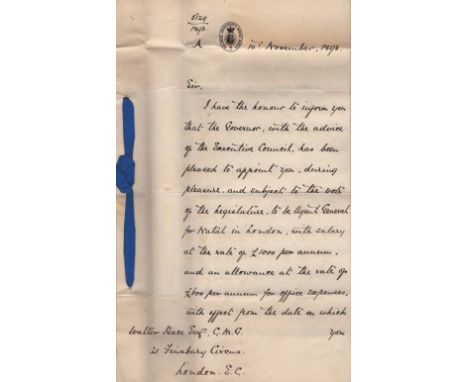 5129
1893.
10th November, 1893.
Sir,
I have the honour to inform you
that the Governor, with the advice
of the Executive Council, has been
pleased to appoint you, during
pleasure, and subject to the vote
of the Legislature, to be Agent General
for Natal in London, with salary
at the rate of £1000 per annum,
and an allowance at the rate of
£600 per annum for office expenses,
with effect from the date on which
Walter Peace Esqr, C.M.G. you
21 Finsbury Circus.
London. E.C.